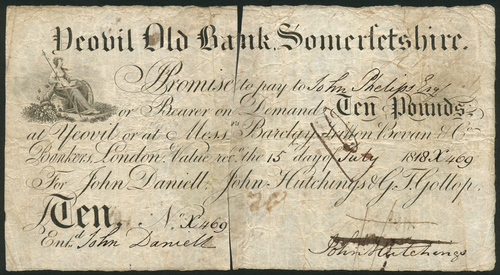 Yeovil Old Bank, Somersetshire.
I Promise to pay to John Phelips Esqr
or Bearer on Demand Ten Pounds
at Yeovil or at Messrs Barclay Tritton Bevan & Co
Bankers, London. Value recd the 15 day of July 1818 X 469
For John Daniell, John Hutchings & G. T. Gollop,
Ten No X 469
Entd John Daniell John Hutchings